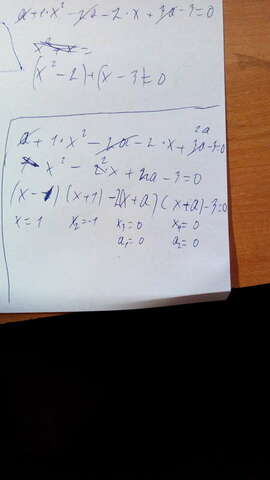 a+1·x²-2a-2·x+3a-3=0
x²+x=
(x²-2)+(x-3)=0
a+1·x²-2a-2·x+3a-3=0
2a
x²-2x+2a-3=0
(x-1)(x+1)-2(x+a)(x+a)-3=0
x=1 x₂=-1 x₃=0 x₄=0
a₁=0 a₂=0